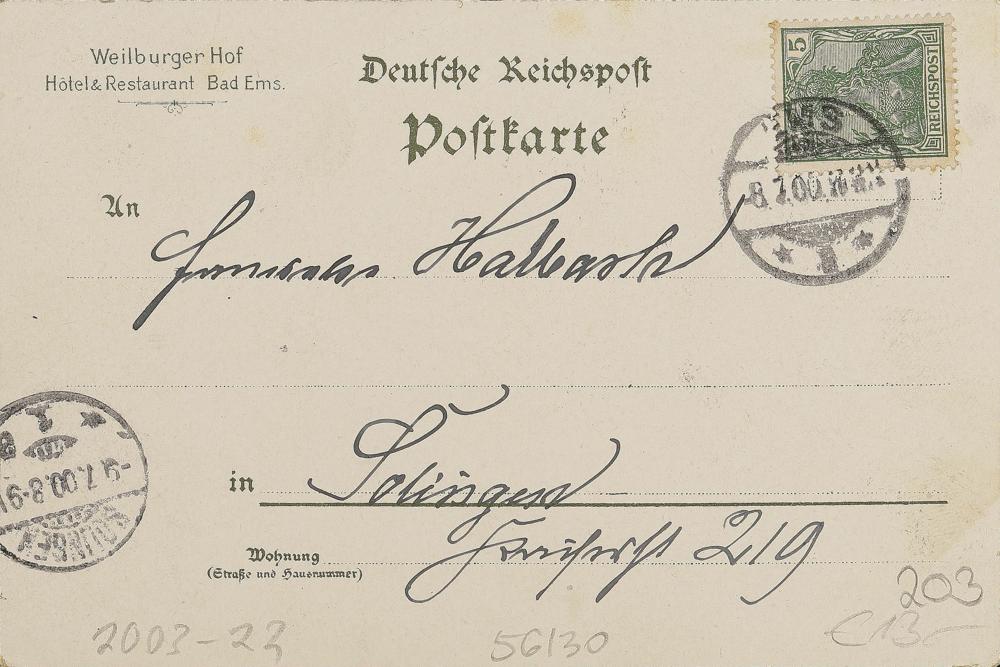 Weilburger Hof
Hôtel & Restaurant Bad Ems.
Deutsche Reichspost
Postkarte
5
REICHSPOST
EMS
8.7.00.
An
Halbach
in Solingen
Wohnung
(Straße und Hausnummer)
Kaiserst 219
-9.7.00.8-9
SOLINGEN
203
€13-
2003-23
56130